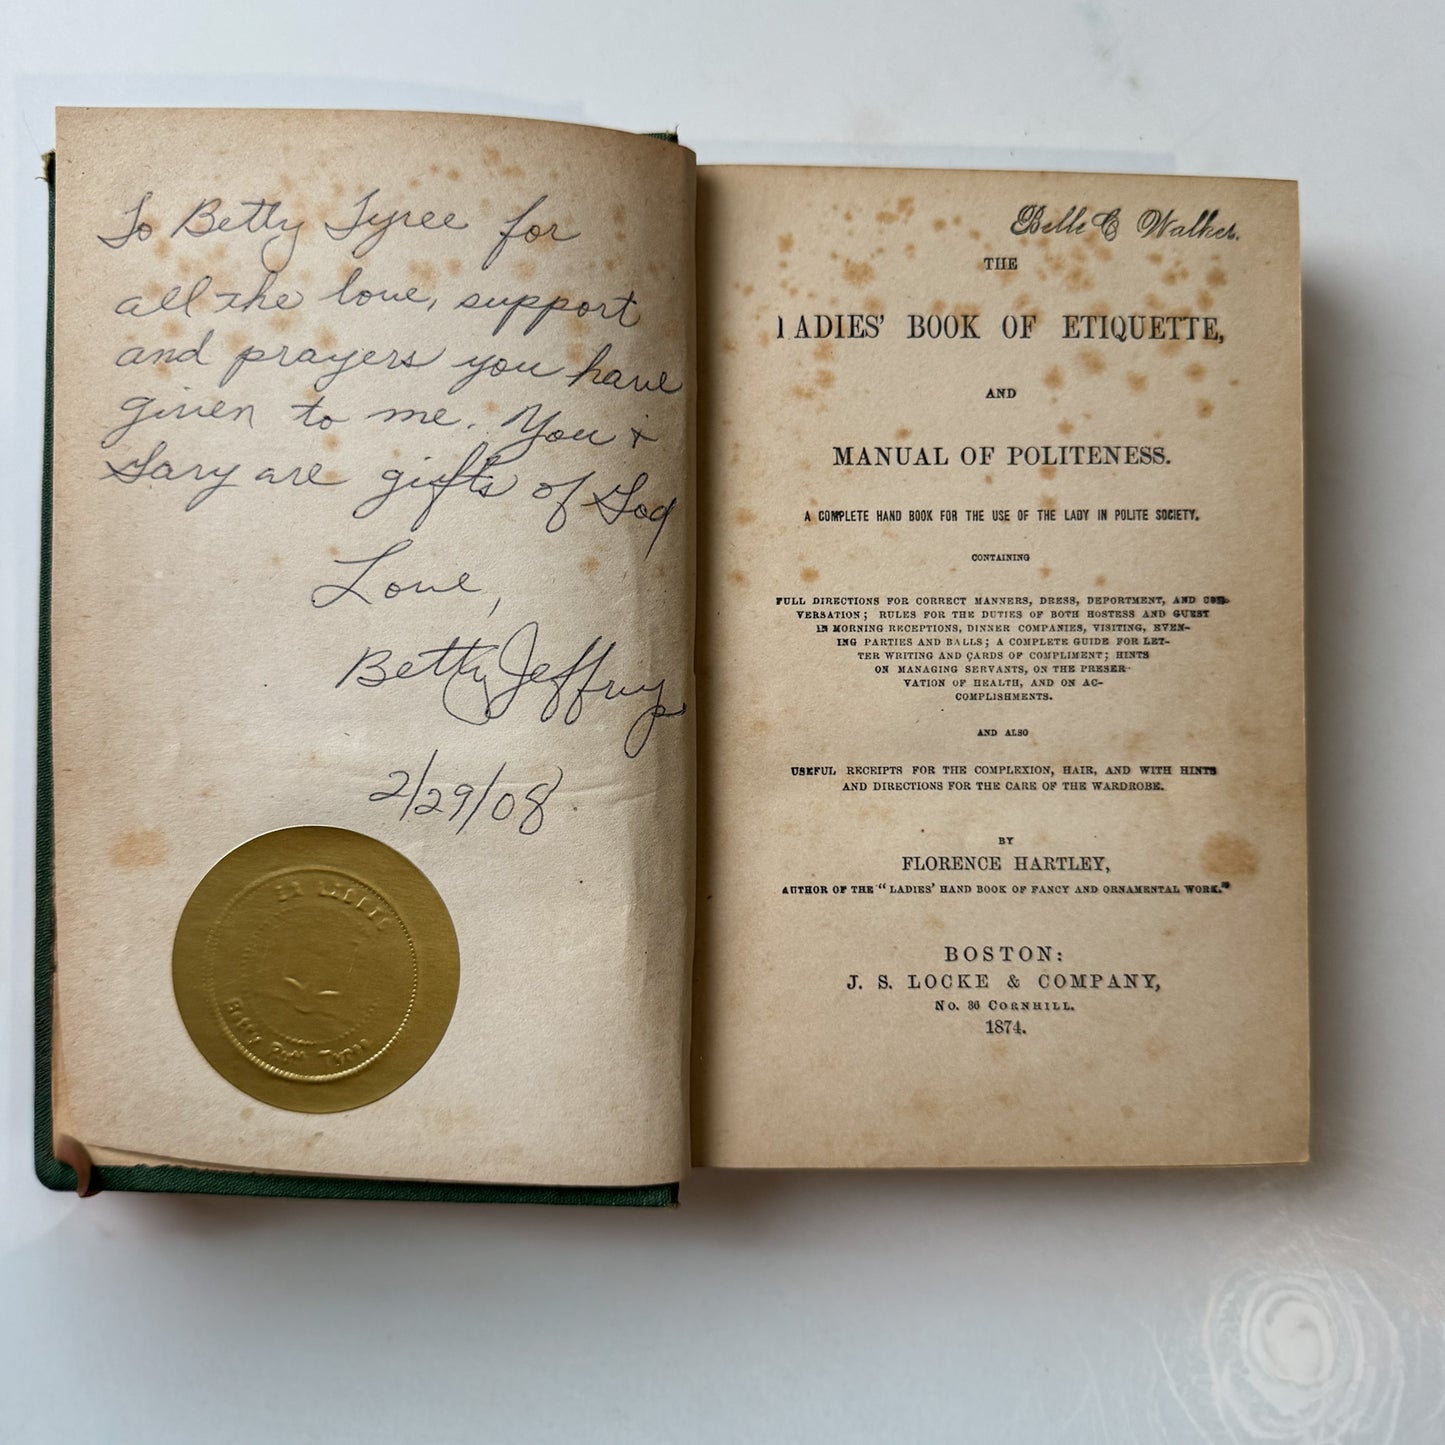 To Betty Tyree for
all the love, support
and prayers you have
given to me. You +
Gary are gifts of God
Love,
Betty Jeffrey
2/29/08
EX LIBRIS
Tyree
Belle C Walker.
THE
LADIES' BOOK OF ETIQUETTE,
AND
MANUAL OF POLITENESS.
A COMPLETE HAND BOOK FOR THE USE OF THE LADY IN POLITE SOCIETY.
CONTAINING
FULL DIRECTIONS FOR CORRECT MANNERS, DRESS, DEPORTMENT, AND CON-
VERSATION; RULES FOR THE DUTIES OF BOTH HOSTESS AND GUEST
IN MORNING RECEPTIONS, DINNER COMPANIES, VISITING, EVEN-
ING PARTIES AND BALLS; A COMPLETE GUIDE FOR LET-
TER WRITING AND CARDS OF COMPLIMENT; HINTS
ON MANAGING SERVANTS, ON THE PRESER-
VATION OF HEALTH, AND ON AC-
COMPLISHMENTS.
AND ALSO
USEFUL RECEIPTS FOR THE COMPLEXION, HAIR, AND WITH HINTS
AND DIRECTIONS FOR THE CARE OF THE WARDROBE.
BY
FLORENCE HARTLEY,
AUTHOR OF THE "LADIES' HAND BOOK OF FANCY AND ORNAMENTAL WORK."
BOSTON:
J. S. LOCKE & COMPANY,
No. 36 CORNHILL.
1874.